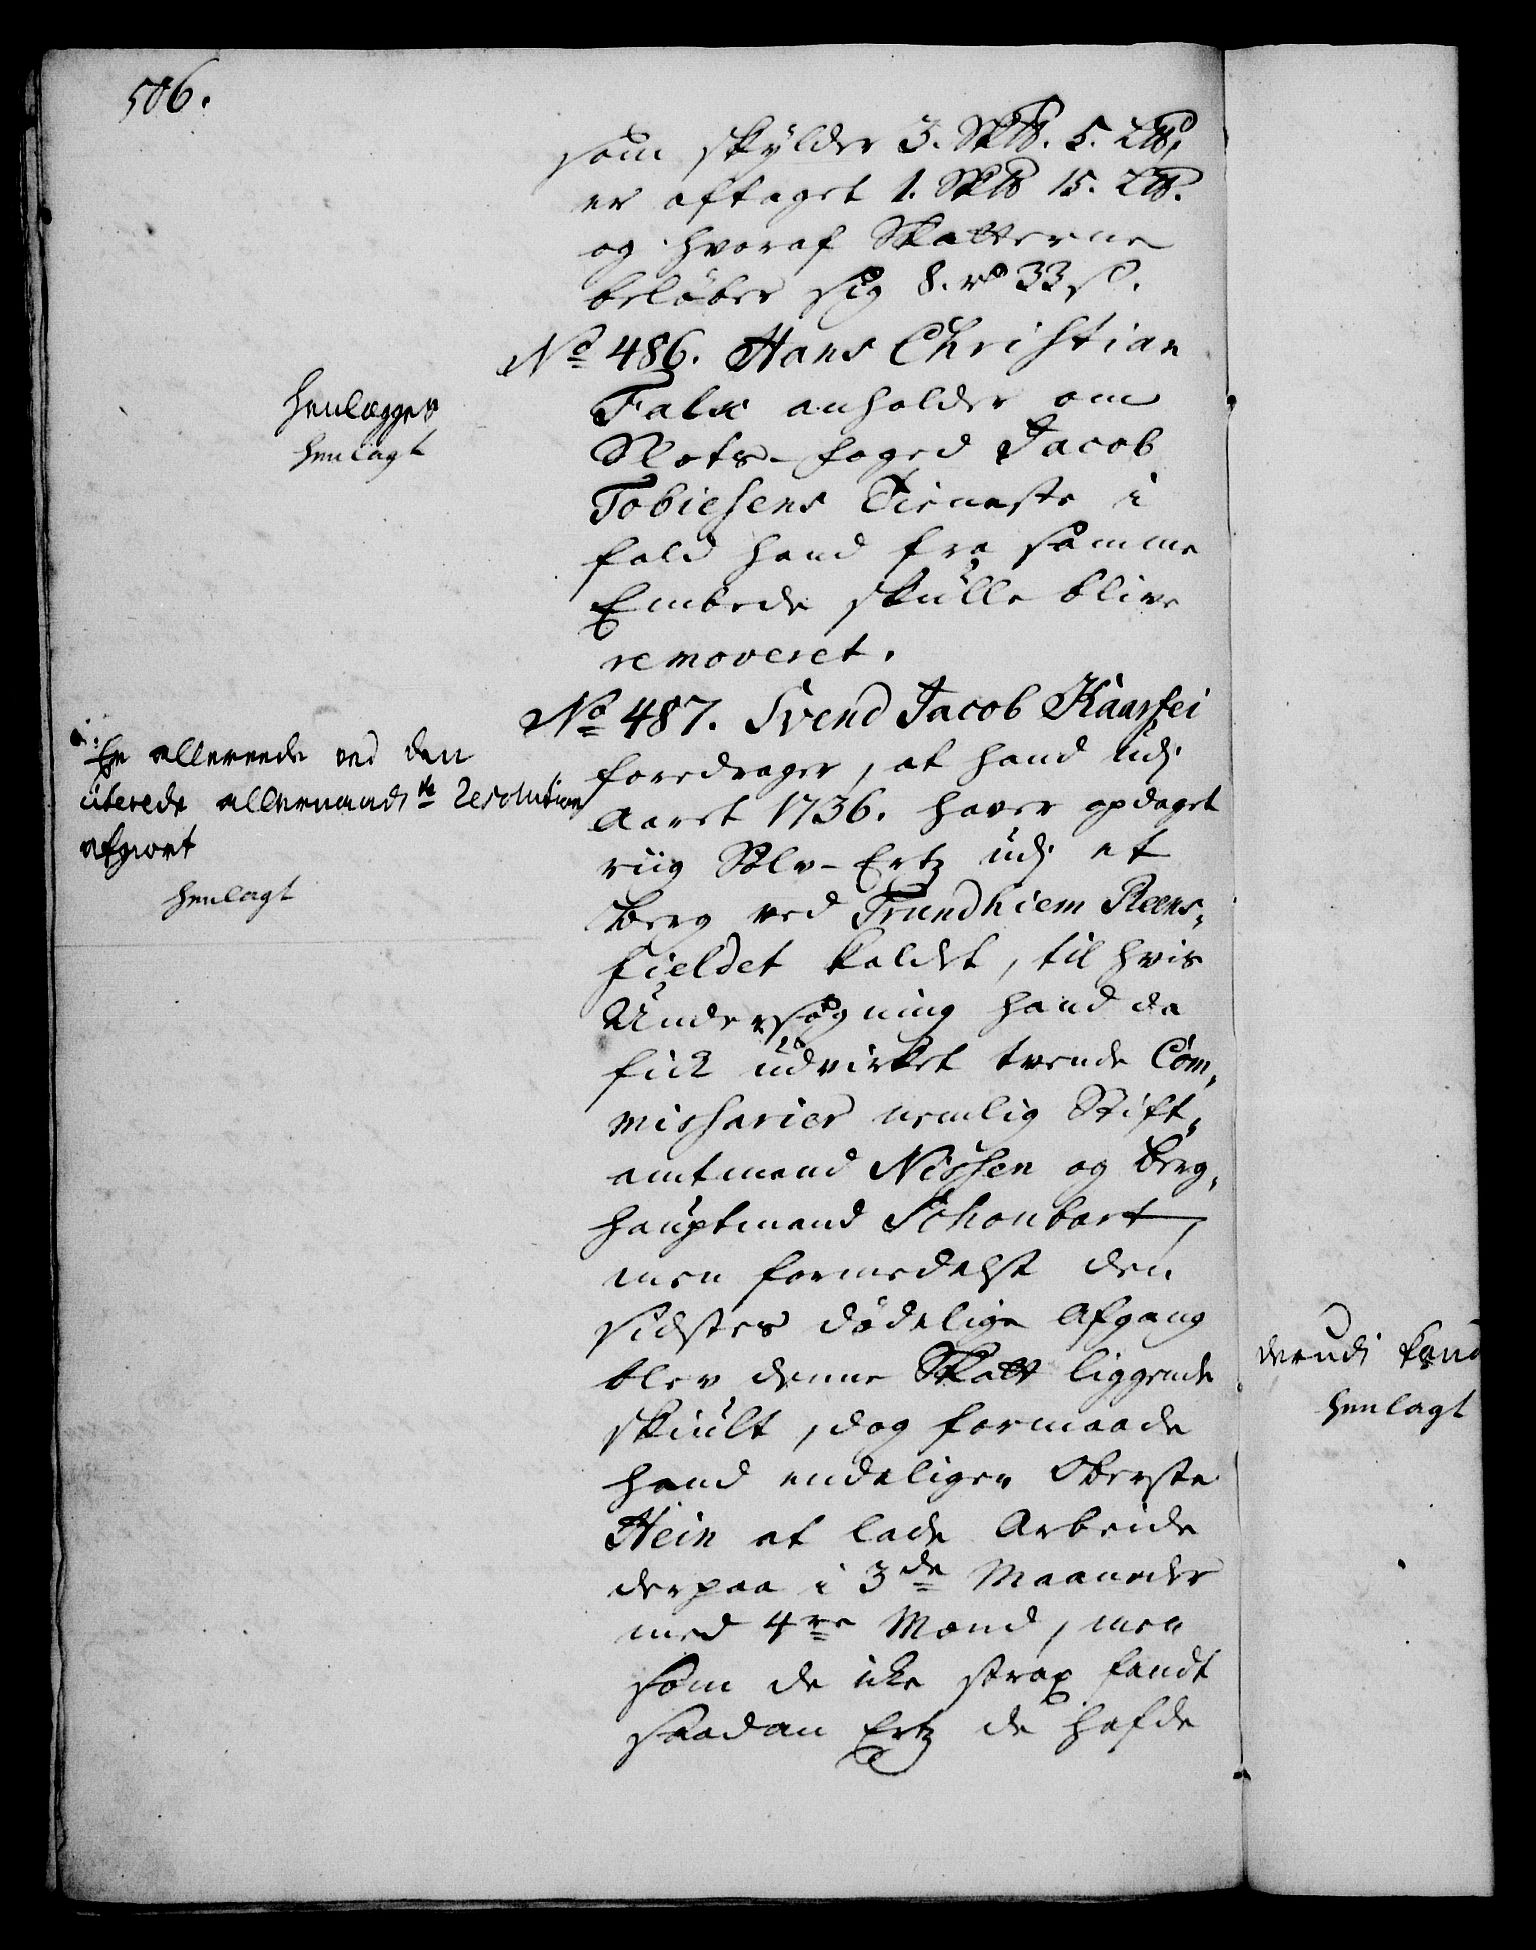 506.
som skylder 3. Sk℔. 5. L℔,
er aftaget 1. Sk℔ 15. L℔.
og hvoraf Skatterne
beløber sig 8. rd 33 s.
No 486. Hans Christian
Falx anholder om
Slots-foged Jacob
Tobiesens Tieneste i
fald hand fra samme
Embede skulle blive
removeret.
henlægges
henlagt
No 487. Svend Jacob Kaarfei
foredrager, at hand udj
Aaret 1736. haver opdaget
riig Sølv-Ertz udj et
berg ved Trundhiem Reens-
fieldet kaldet, til hvis
Undersøgning hand da
fick udvirket tvende Com-
missarier nemlig Stift-
amtmand Nissen og berg-
hauptmand Schonbart,
men formedelst den
sidstes dødelige Afgang
blev denne Skatt liggende
skiult, dog formaade
hand endeligen Oberste
Hein at lade Arbeide
derpaa i 3de Maaneder
med 4re Mand, men
som de icke strax fandt
saadan Ertz de hafde
Er allereede ved den
citerede allernaadste Resolution
afgiort
henlagt
derudi
henlagt